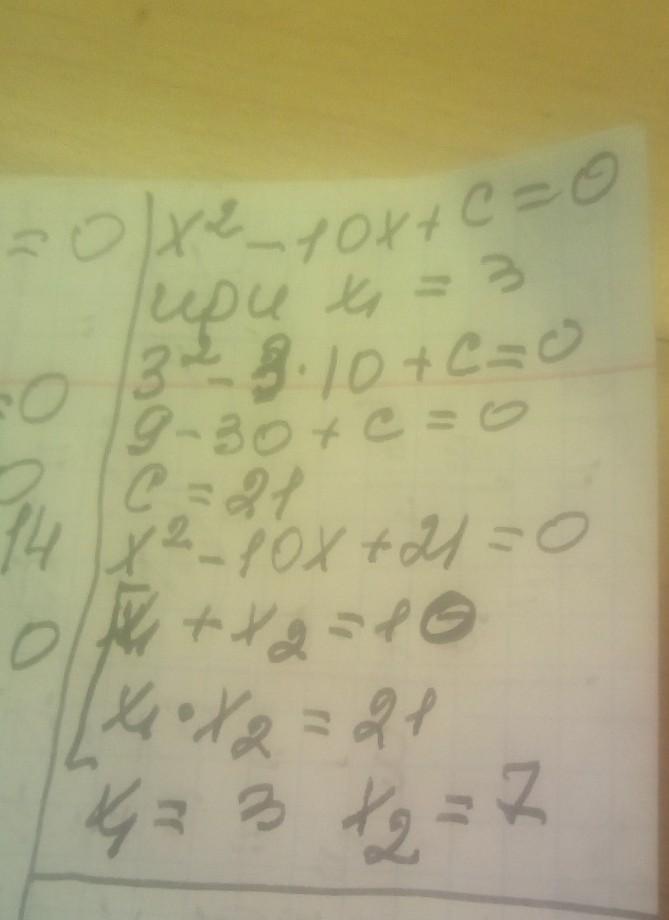 = 0
x² - 10x + c = 0
при x₁ = 3
3² - 3 · 10 + c = 0
=0
9 - 30 + c = 0
0
c = 21
14
x² - 10x + 21 = 0
0
x₁ + x₂ = 10
x₁ · x₂ = 21
x₁ = 3 x₂ = 7